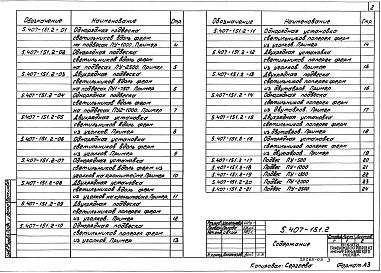 2
Обозначение Наименование Стр.
5.407-151.2-01 Однорядная подвеска
светильников вдоль ферм
на подвесах ПУ-1000. Пример 4
5.407-151.2-02 Однорядная подвеска
светильников вдоль ферм
на подвесах ПУ-2500. Пример 5
5.407-151.2-03 Двухрядная подвеска
светильников вдоль ферм
на подвесах Пример 6
5.407-151.2-04 Однорядная подвеска
светильников вдоль ферм
на подвесах Пример 7
5.407-151.2-05 Двухрядная установка
светильников вдоль ферм
из уголков. Пример 8
5.407-151.2-06 Однорядная установка
светильников вдоль ферм
из уголков. Пример 9
5.407-151.2-07 Однорядная установка
светильников вдоль ферм из
уголков на кронштейне. Пример 10
5.407-151.2-08 Двухрядная установка
светильников вдоль ферм
из уголков на кронштейне. Пример 11
5.407-151.2-09 Двухрядная подвеска
светильников поперек ферм
из уголков. Пример 12
5.407-151.2-10 Однорядная подвеска
светильников поперек ферм
из уголков. Пример 13
Обозначение Наименование Стр.
5.407-151.2-11 Однорядная установка
светильников поперек ферм
из уголков. Пример 14
5.407-151.2-12 Двухрядная установка
светильников поперек ферм
из уголков. Пример 15
5.407-151.2-13 Двухрядная подвеска
светильников поперек ферм
из двутавров. Пример 16
5.407-151.2-14 Однорядная подвеска
светильников поперек ферм
из двутавров. Пример 17
5.407-151.2-15 Двухрядная установка
светильников поперек ферм
из двутавров. Пример 18
5.407-151.2-16 Однорядная установка
светильников поперек ферм
из двутавров. Пример 19
5.407-151.2-17 Подвес ПУ-500 20
5.407-151.2-18 Подвес ПУ-1000 21
5.407-151.2-19 Подвес ПУ-1500 22
5.407-151.2-20 Подвес ПУ-2000 23
5.407-151.2-21 Подвес ПУ-2500 24
5.407-151.2
Содержание
Копировал: Сергеева Формат А3